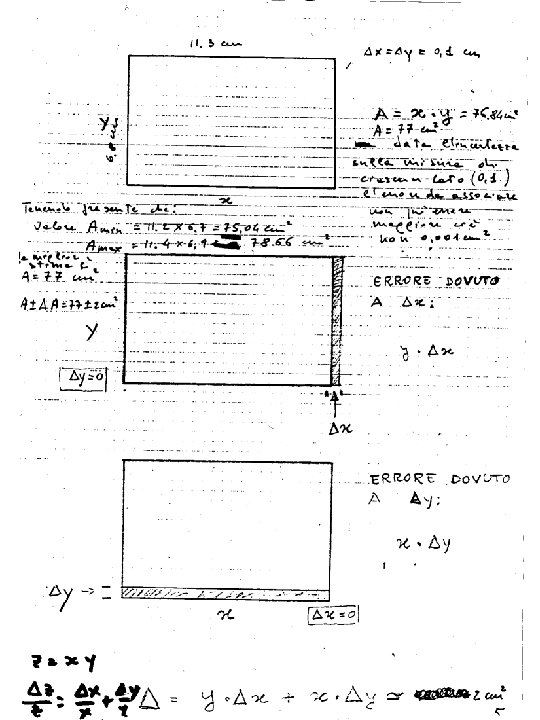 11,3 cm
Δx=Δy = 0,1 cm
y
6,8 cm
A = x·y = 76,84 cm²
A = 77 cm²
data l'incertezza
sulla misura di
ciascun lato (0,1)
l'errore da associare
non può essere
maggiore cioè
non 0,001 cm²
x
Tenendo presente che:
valore Amin = 11.2 x 6,7 = 75,04 cm²
Amax = 11.4 x 6,9 = 78.66 cm²
la miglior
stima è
A = 77 cm²
A±ΔA = 77±2 cm²
y
Δy=0
ERRORE DOVUTO
A Δx:
y · Δx
Δx
ERRORE DOVUTO
A Δy:
x · Δy
Δy →
x
Δx=0
z = x y
Δz/z = Δx/x + Δy/y
Δ = y·Δx + x·Δy ≃ 2 cm²